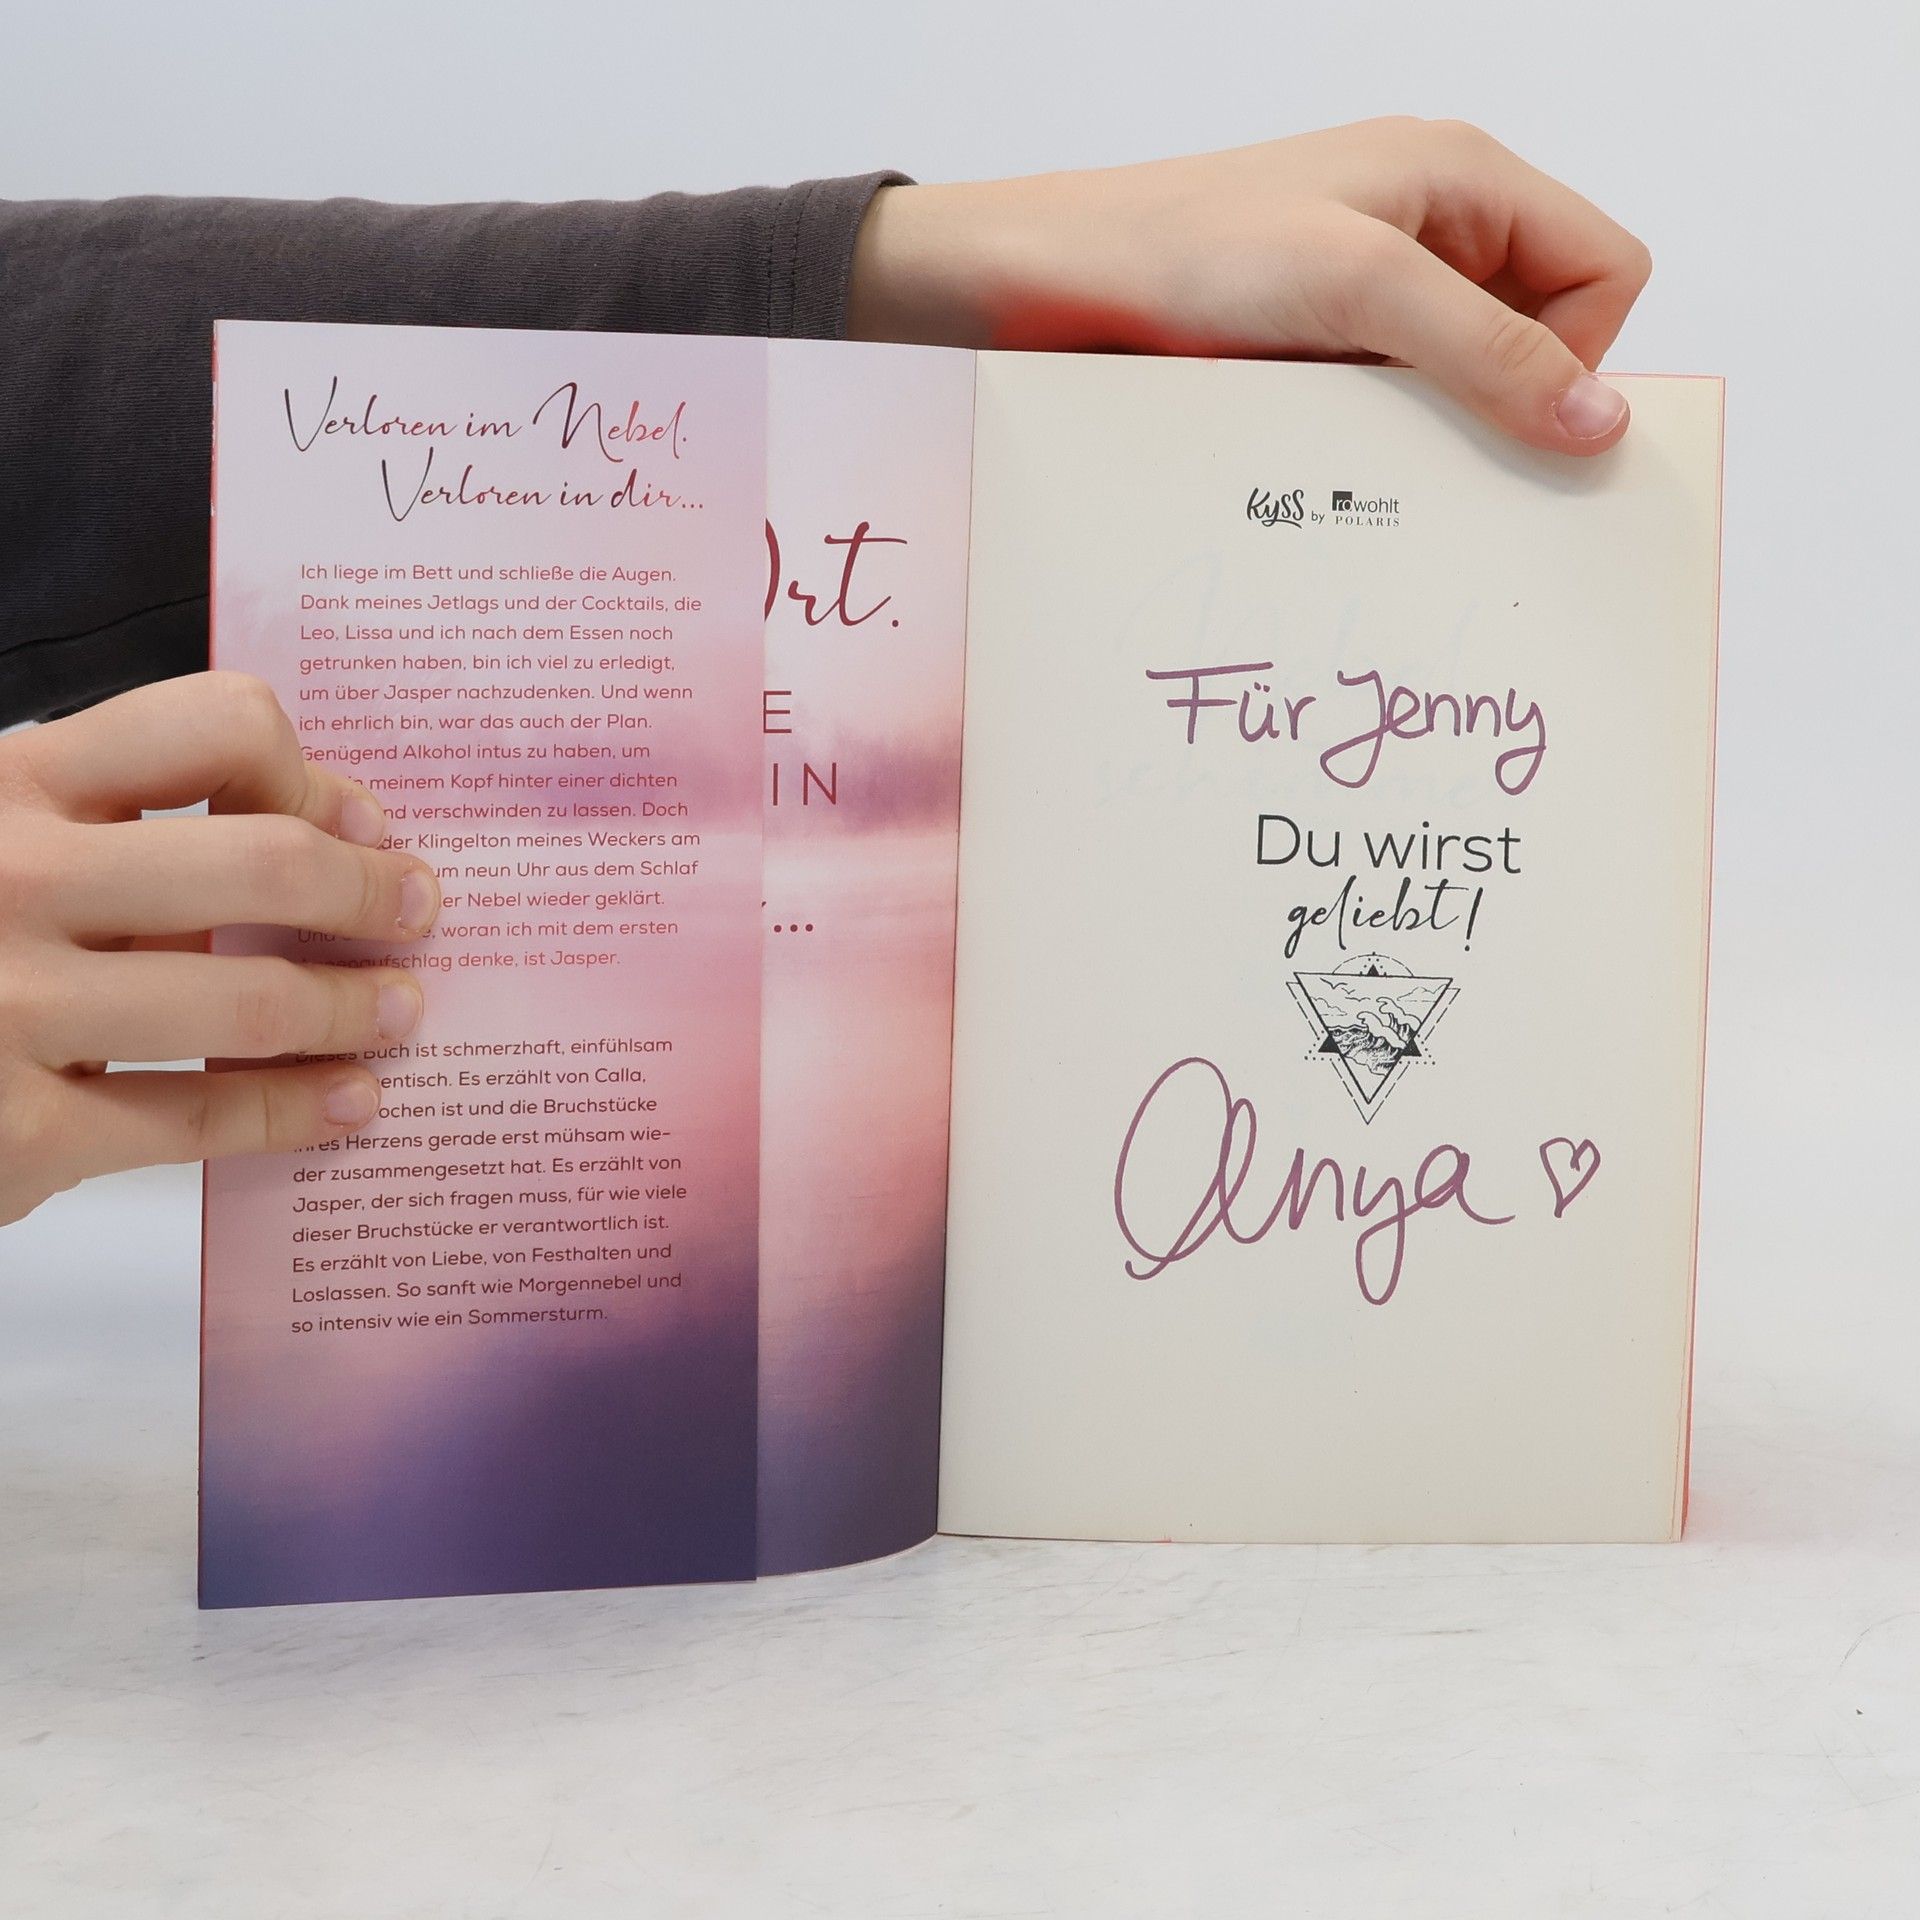 Verloren im Nebel.
Verloren in dir...
Ich liege im Bett und schließe die Augen.
Dank meines Jetlags und der Cocktails, die
Leo, Lissa und ich nach dem Essen noch
getrunken haben, bin ich viel zu erledigt,
um über Jasper nachzudenken. Und wenn
ich ehrlich bin, war das auch der Plan.
Genügend Alkohol intus zu haben, um
meinem Kopf hinter einer dichten
verschwinden zu lassen. Doch
der Klingelton meines Weckers am
um neun Uhr aus dem Schlaf
Nebel wieder geklärt.
woran ich mit dem ersten
denke, ist Jasper.
Dieses Buch ist schmerzhaft, einfühlsam
Es erzählt von Calla,
ist und die Bruchstücke
ihres Herzens gerade erst mühsam wie-
der zusammengesetzt hat. Es erzählt von
Jasper, der sich fragen muss, für wie viele
dieser Bruchstücke er verantwortlich ist.
Es erzählt von Liebe, von Festhalten und
Loslassen. So sanft wie Morgennebel und
so intensiv wie ein Sommersturm.
Ort.
E
IN
...
KySS by rowohlt
POLARIS
Für Jenny
Du wirst
geliebt!
Anya